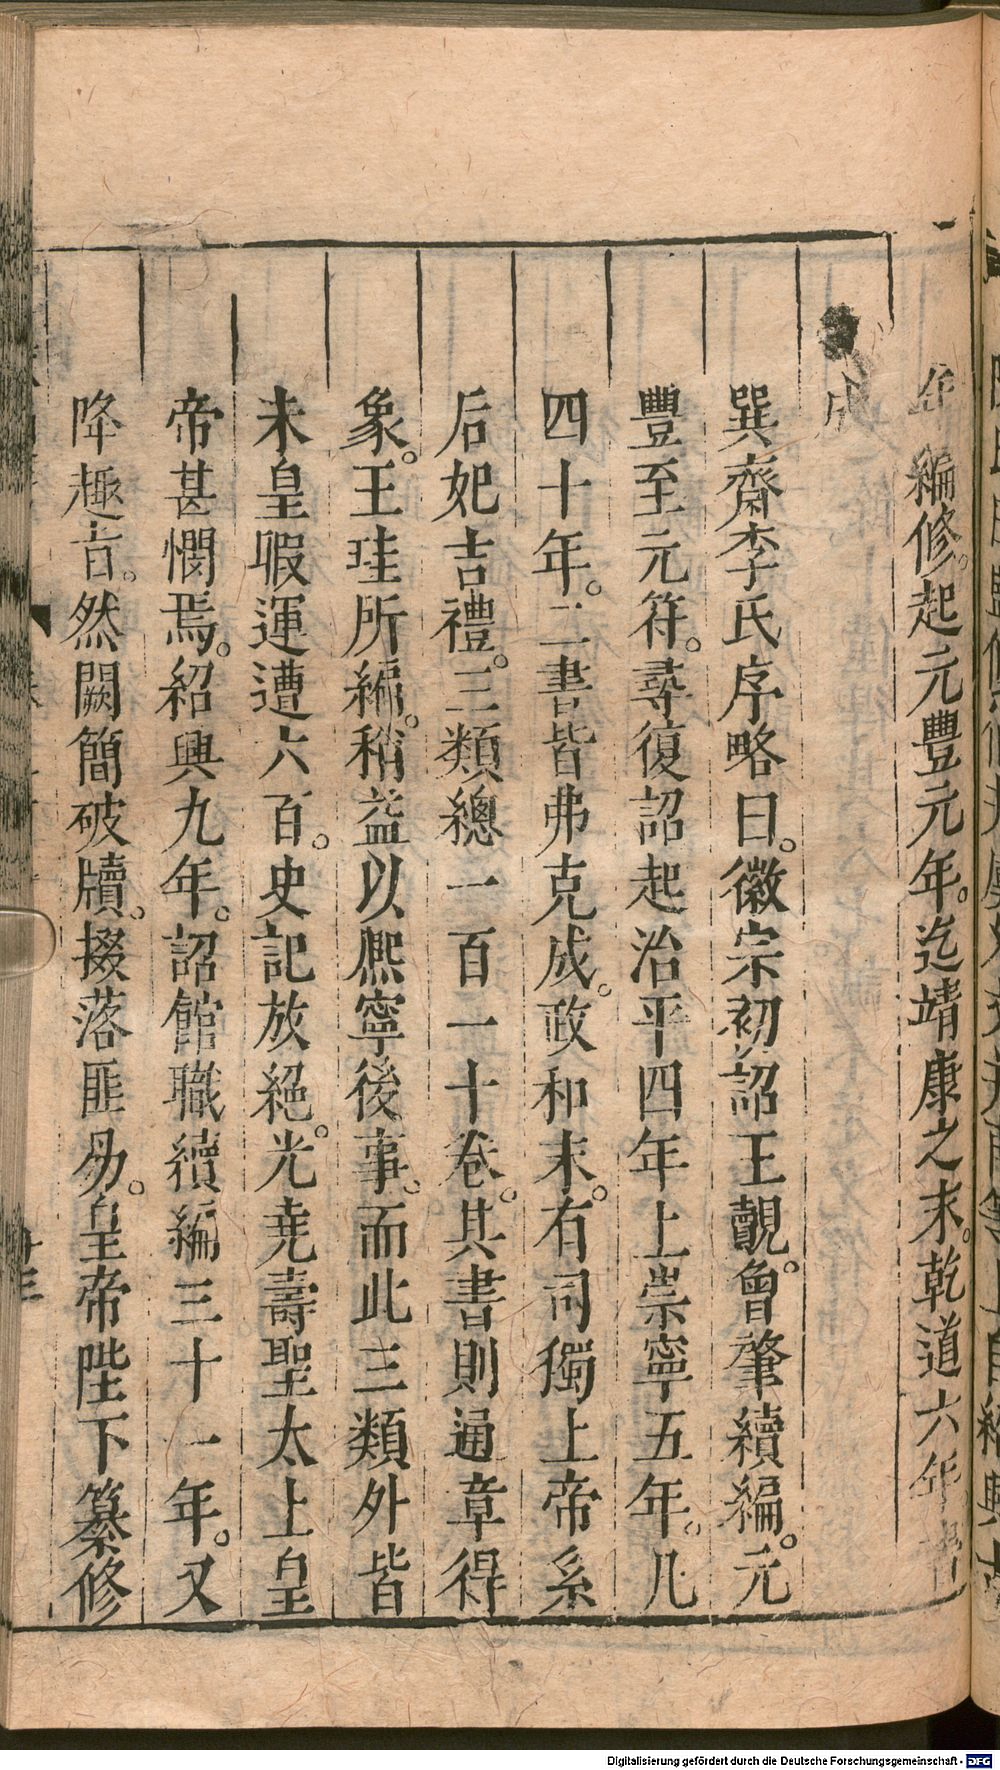 編修。起元豐元年。迄靖康之末。乾道六年。
成
巽齋李氏序略曰。徽宗初詔王覿。曾肇續編。元
豐至元符。尋復詔起治平四年上崇寧五年。凡
四十年。二書皆弗克成。政和末。有司獨上帝系
后妃吉禮。三類總一百一十卷。其書則通章得
象。王珪所編。稍益以熈寧後事。而此三類外皆
未皇暇運遭六百。史記放絕。光堯壽聖太上皇
帝甚憫焉。紹興九年。詔館職續編三十一年。又
降趣旨。然闕簡破牘。掇落匪易。皇帝陛下纂修
Digitalisierung gefördert durch die Deutsche Forschungsgemeinschaft - DFG